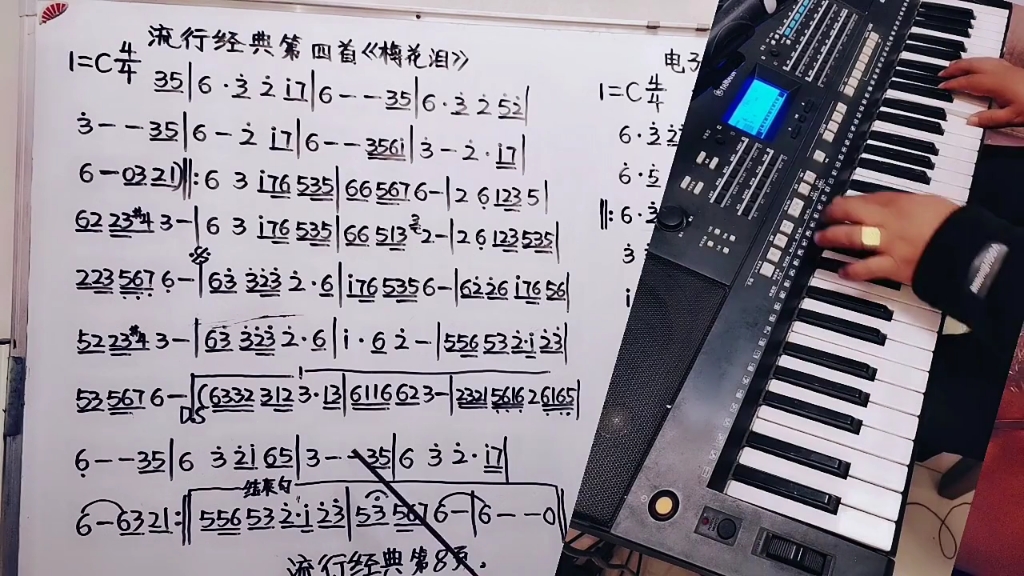 流行经典第四首《梅花泪》
1=C 4/4
35|6·3̇ 2̇ i7|6--35|6·3̇ 2̇ 5̇2̇|
3̇--35|6-2̇ i7|6--356i|3̇-2̇·i7|
6-0321)‖:6 3 i76 535|66 567 6-|2 6̣ 123 5|
62 23#4 3-|6 3 i76 535|66 513 2-|2 6̣ 123 535|
223 567 6-|63̇ 3̇2̇3̇ 2̇·6|i76 535 6-|62̇2̇6 i76 56|
52 23#4 3-|63̇ 3̇2̇3̇ 2̇·6|i·6 2̇-|556 53 2̇·i 2̇3̇|
52 567 6-|(6332 312 3·13|6116 62 3-|2321 5616 2 6165|
DS
6̣--35|6 3̇ 2̇i 65|3--35|6 3̇ 2̇·i7|
结束句
6-6321:‖556 53 2̇·i 2̇3̇|53 567 6-|6--0‖
流行经典第8页.
电子
1=C 4/4
6·3̇
6·5
‖:6·3̇
3̇
i